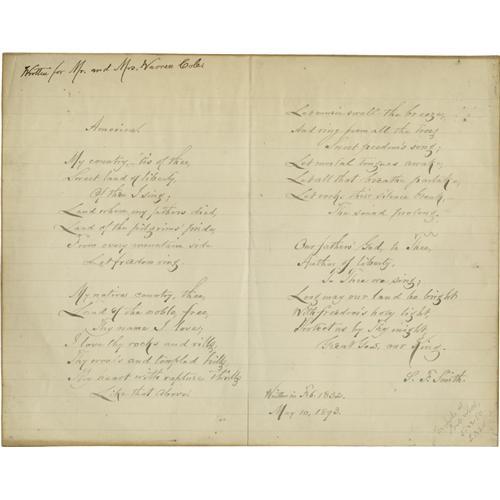 Written for Mr. and Mrs. Warren Coles
America.
My country,- 'tis of thee,
Sweet land of liberty,
Of thee I sing;
Land where my fathers died,
Land of the pilgrims' pride,
From every mountain side
Let freedom ring.
My native country, thee,
Land of the noble, free,
Thy name I love;
I love thy rocks and rills,
Thy woods and templed hills,
My heart with rapture thrills
Like that above.
Let music swell the breeze,
And ring from all the trees
Sweet freedom's song;
Let mortal tongues awake;
Let all that breathe partake,
Let rocks their silence break,
The sound prolong.
Our fathers' God, to Thee,
Author of liberty,
To Thee we sing;
Long may our land be bright
With freedom's holy light,
Protect us by Thy might,
Great God, our King.
S. F. Smith.
Written in Feb. 1832.
May 10, 1893.